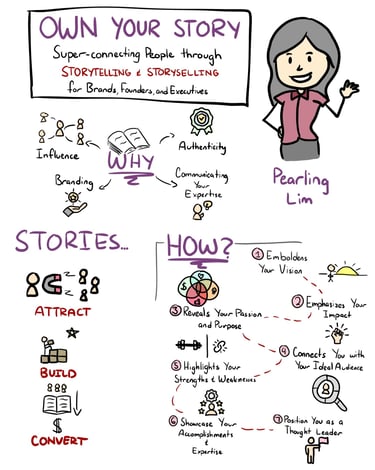 OWN YOUR STORY
Super-connecting People through
STORYTELLING & STORYSELLING
for Brands, Founders, and Executives
Influence
Authenticity
WHY
Branding
Communicating
Your
Expertise
Pearling
Lim
STORIES...
ATTRACT
BUILD
$
CONVERT
HOW?
1 Emboldens
Your Vision
2 Emphasizes Your
Impact
$
3 Reveals Your Passion
and Purpose
4 Connects You with
Your Ideal Audience
5 Highlights Your
Strengths & Weaknesses
6 Showcase Your
Accomplishments
& Expertise
7 Position You as a
Thought Leader